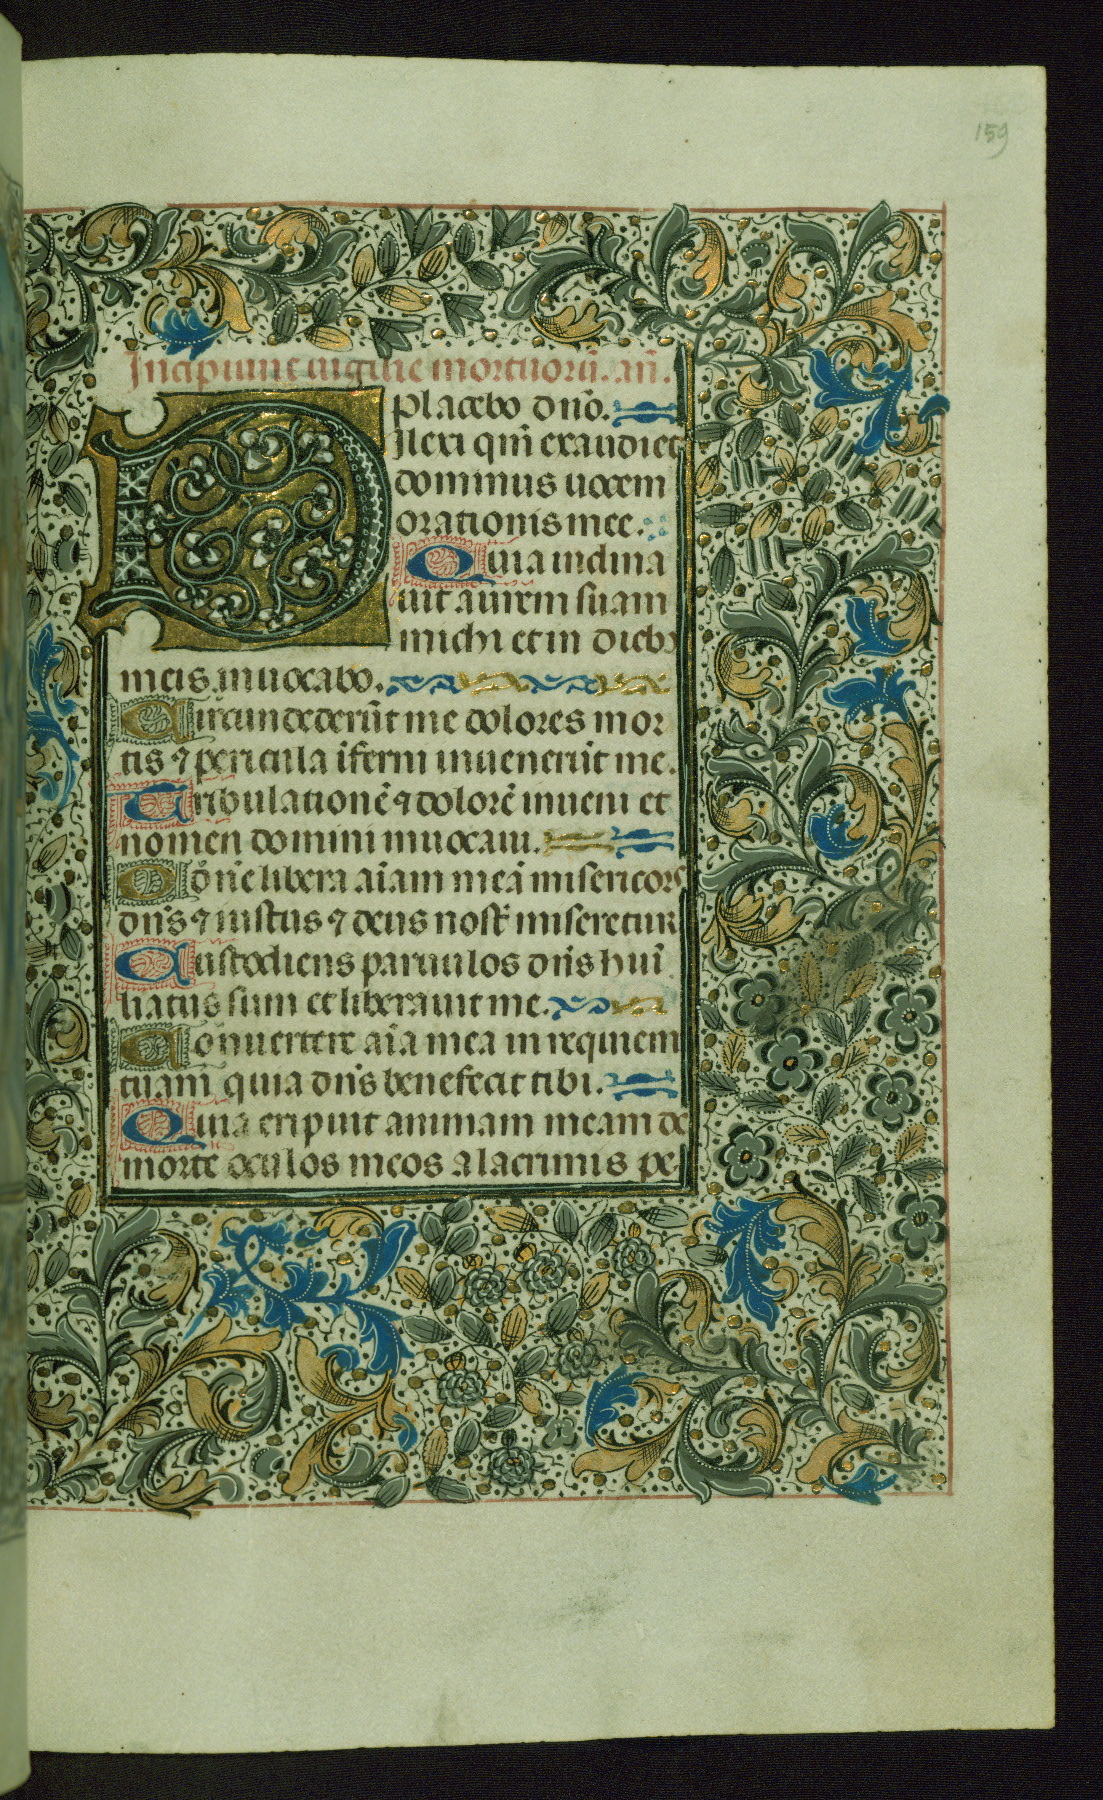 159
Incipiunt uigilie mortuorū. an̄.
Placebo dn̄o.
Dilexi qm̄ exaudiet
dominus uocem
orationis mee.
Quia inclina
uit aurem suam
michi et in dieb
meis inuocabo.
Circundederūt me dolores mor
tis ⁊ pericula īferni inuenerūt me.
Tribulationē ⁊ dolorē inueni et
nomen domini inuocaui.
O dn̄e libera aīam meā misericors
dn̄s ⁊ iustus ⁊ deus nosť miseretur
Custodiens paruulos dn̄s huī
liatus sum et liberauit me.
Conuertere aīa mea in requiem
tuam quia dn̄s benefecit tibi.
Quia eripuit animam meam de
morte oculos meos a lacrimis pe